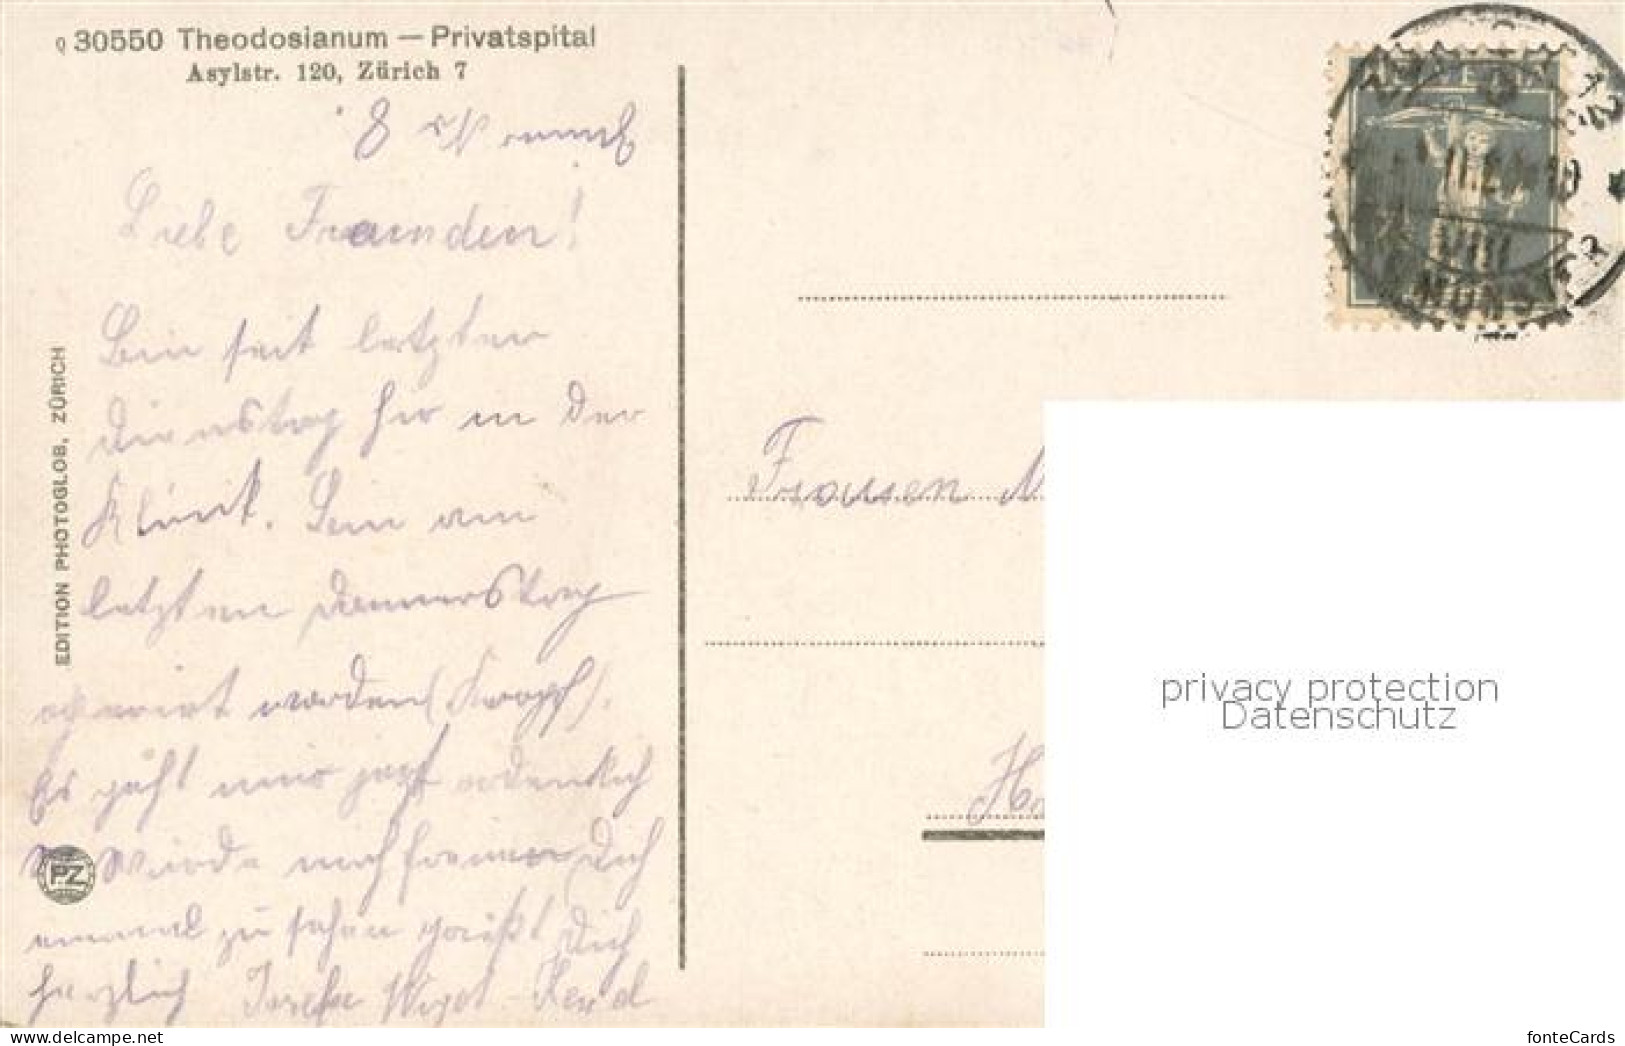 Q 30550 Theodosianum — Privatspital
Asylstr. 120, Zürich 7
Zimmer No 8
Liebe Freunden!
Bin seit letzten
Dienstag hir in der
Klinik. Bin am
letzten Donnerstag
operirt worden (Kropf).
Es geht mir jetzt ordentlich
würde mich freuen Dich
einmal zu sehen grüßt Dich
herzlich
EDITION PHOTOGLOB, ZÜRICH
PZ
HELVETIA
VIII
Frauen M
privacy protection
Datenschutz
fonteCards
delcampe.net
my-postcardshop